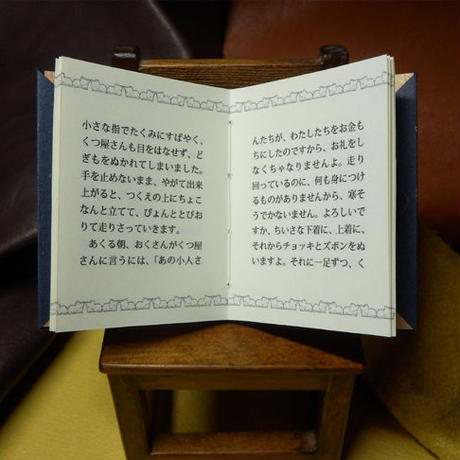 小さな指でたくみにすばやく、
くつ屋さんも目をはなせず、ど
ぎもをぬかれてしまいました。
手を止めないまま、やがて出来
上がると、つくえの上にちょこ
なんと立てて、ぴょんととびお
りて走りさっていきます。
あくる朝、おくさんがくつ屋
さんに言うには、「あの小人さ
んたちが、わたしたちをお金も
ちにしたのですから、お礼をし
なくちゃなりませんよ。走り
回っているのに、何も身につけ
るものがありませんから、寒そ
うでかないません。よろしいで
すか、ちいさな下着に、上着に、
それからチョッキとズボンをぬ
いますよ。それに一足ずつ、く